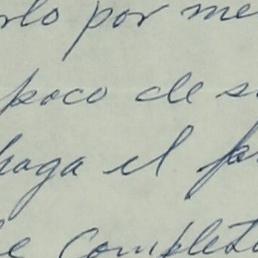 rlo por me
poco de s
haga el p
e complet